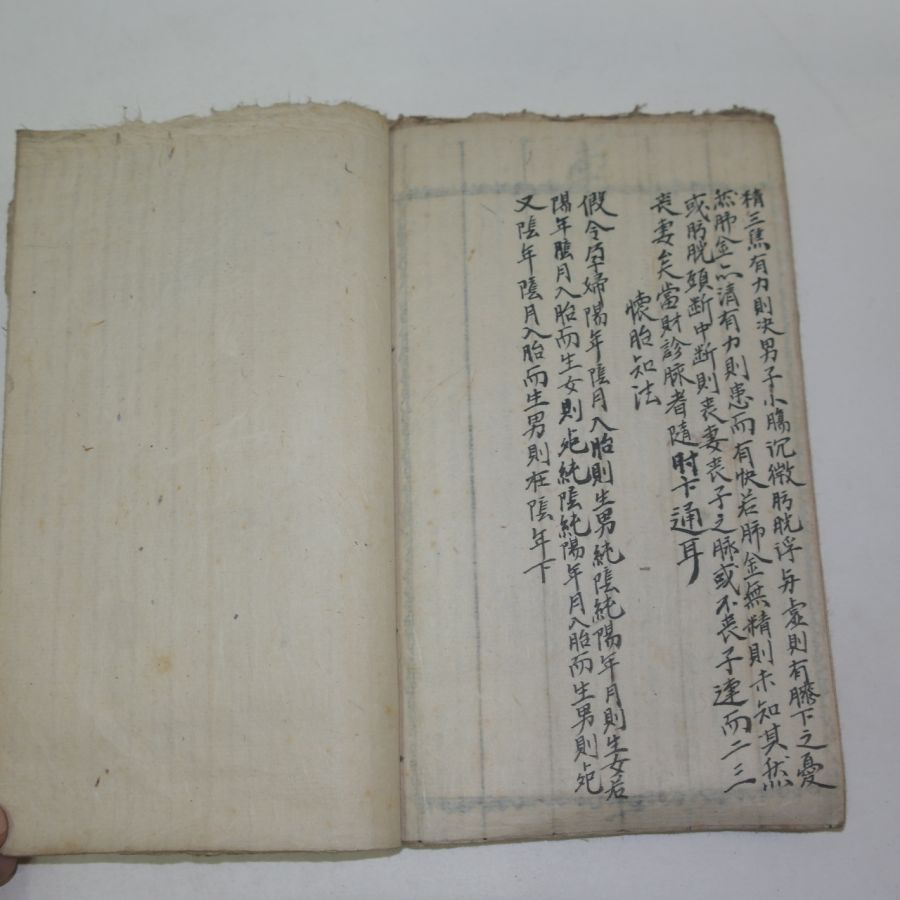 精三焦有力則决男子小腸沉微膀胱浮与虛則有膝下之憂
然肺金亦清有力則患而有快若肺金無精則未知其然
或膀胱頭断中断則丧妻丧子之脉或不丧子連而二三
丧妻矣當財診脉者隨時卞通耳
懷胎知法
假令孕婦陽年陰月入胎則生男純陰純陽年月則生女若
陽年陰月入胎而生女則死純陰純陽年月入胎而生男則死
又陰年陰月入胎而生男則在陰年下